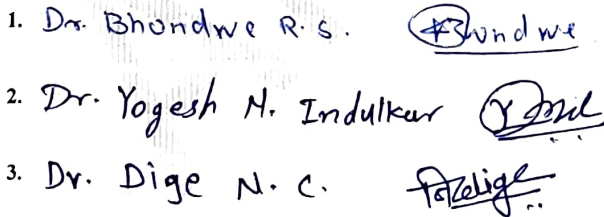 1. Dr. Bhondwe R. S. Bhondwe
2. Dr. Yogesh N. Indulkar
3. Dr. Dige N. C.